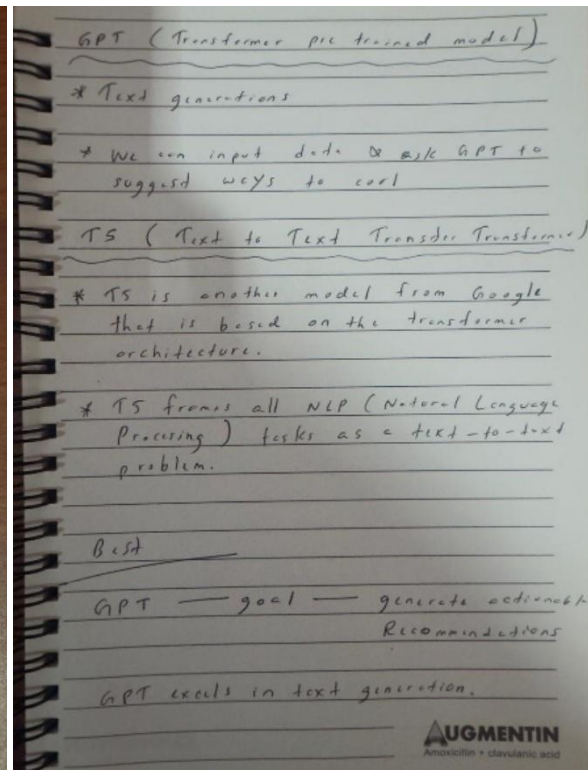 GPT (Transformer pre trained model)
* Text generations
* We can input data & ask GPT to
suggest ways to
T5 (Text to Text Transfer Transformer)
* T5 is another model from Google
that is based on the transformer
architecture.
* T5 frames all NLP (Natural Language
Procesing) tasks as a text-to-text
problem.
Best
GPT — goal — generate actionabl
Recommendations
GPT excels in text generation.
AUGMENTIN
Amoxicillin + clavulanic acid